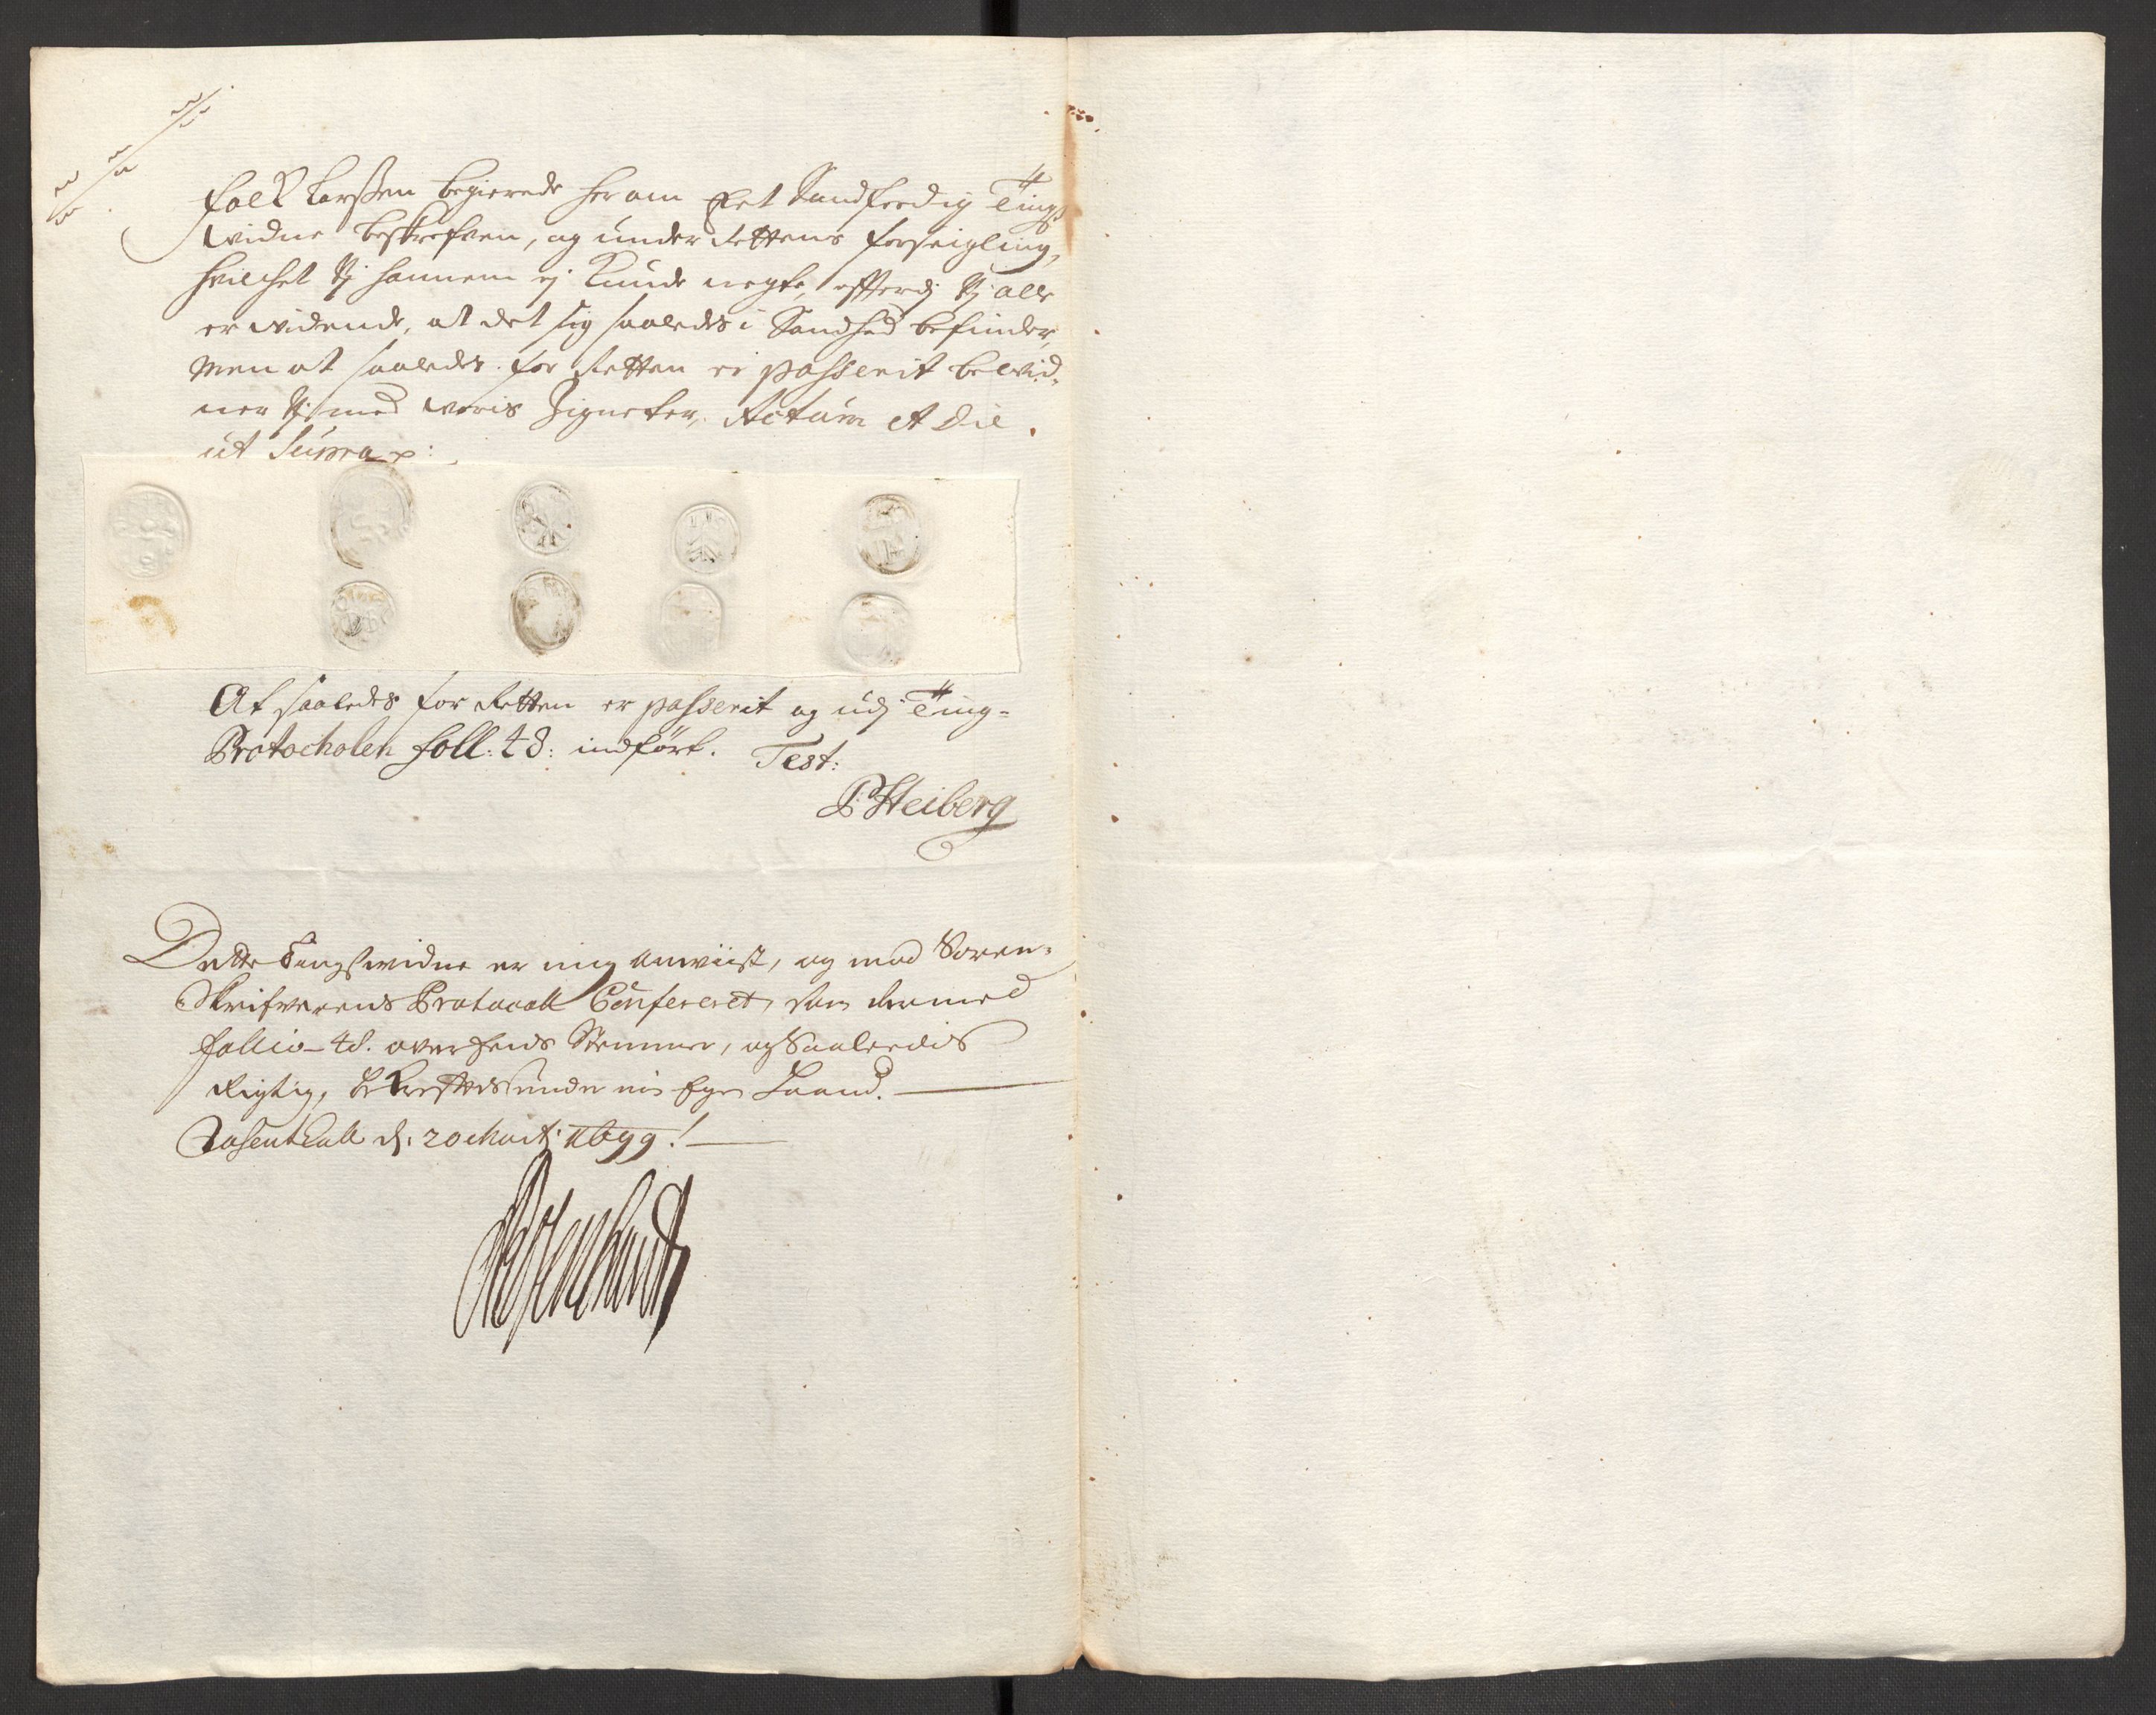 Falk Larßen begierede her om Eet Sandferdig Tings
widne beskrefven, og under Rettens forseigling,
hvilchet Vj hannem ej Kunde negte, efterdj Vj alle
er widende, at det sig saaledes i Sandhed befinder,
Men at saaledes for Retten er passerit bewid-
ner Vj med woris Zigneter, Actum et Die
ut Supra
At saaledes for Retten er passerit og udj Ting-
Protocholen foll: 48: indført. Test:
P Heiberg
Dette Tingswidne er mig anwiist, og med Soren-
Skrifwerens Protocoll Confereret, som dermed
follio 48. ower Eens Stemmer, og Saaleedis
Rigtig, bekreftes under min Egen Haand.
Rosendall d: 20 Martj 1699!